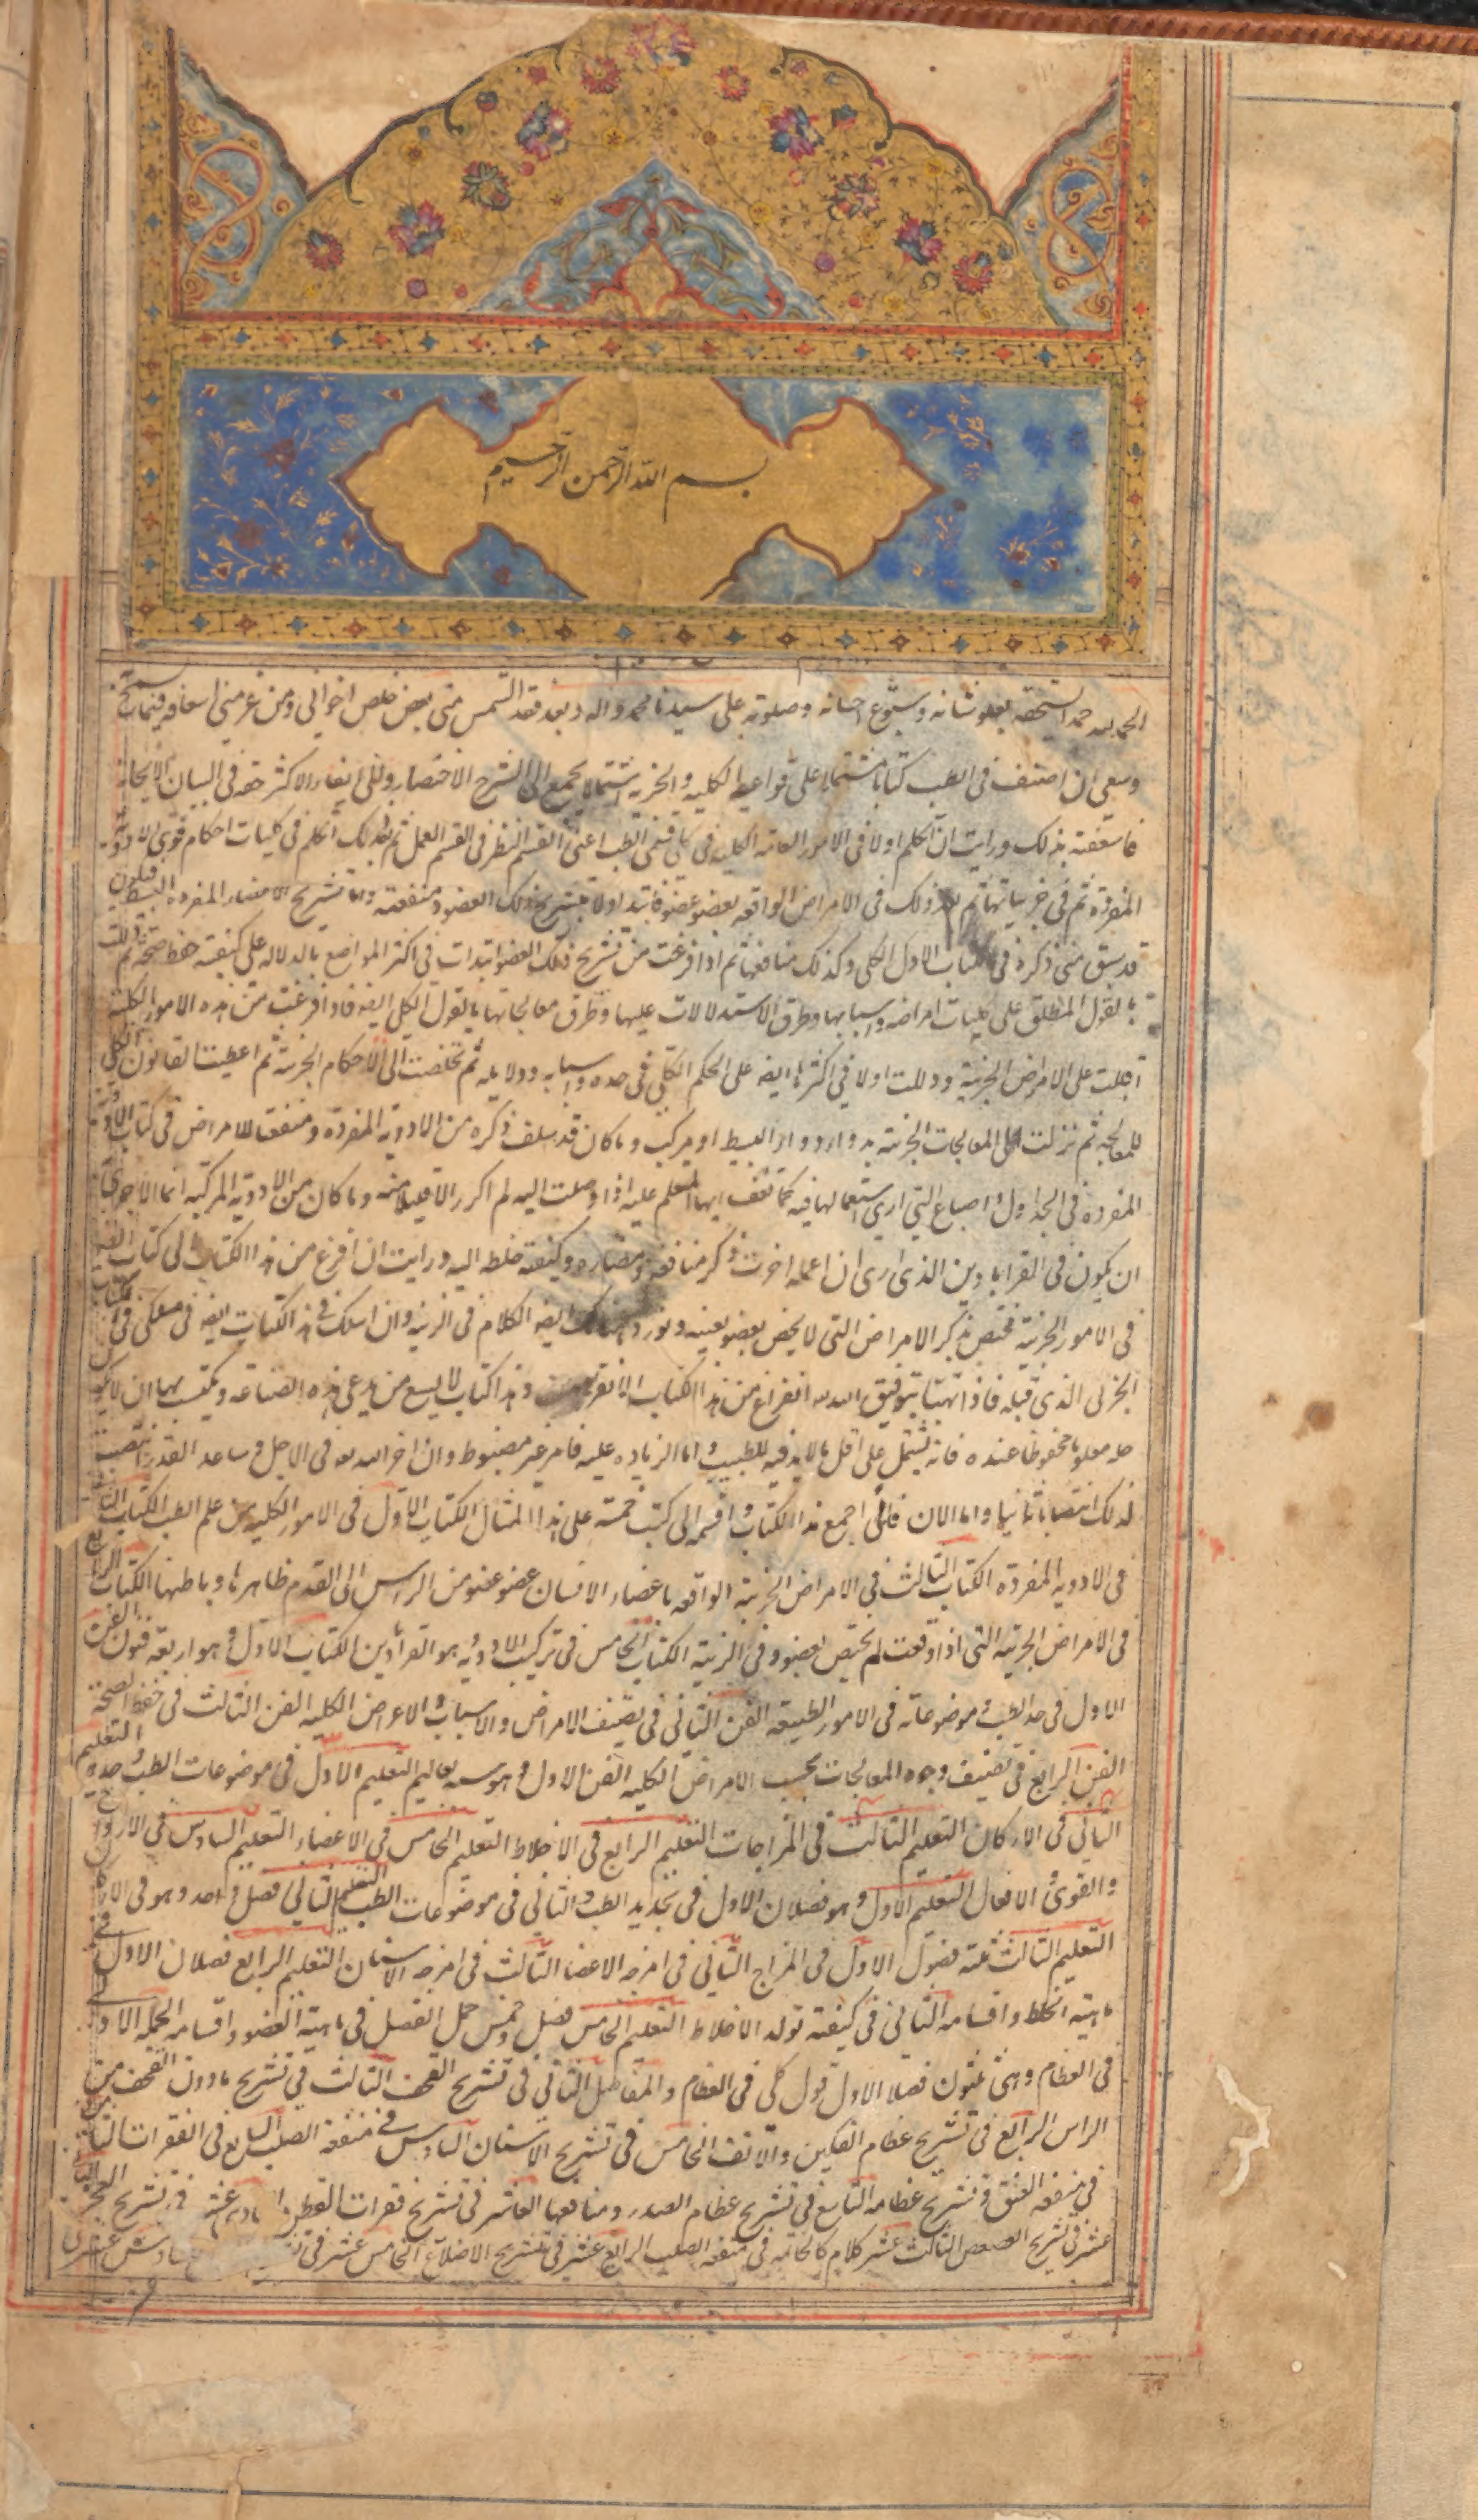 بسم الله الرحمن الرحيم
الحمد لله حمدا يستحقه بعلو شانه وسبوغ احسانه وصلوته على سيدنا محمد واله وبعد فقد التمس منى بعض خلص اخوانى ومن عزمنى اسعافه فيما يسمح
وسعى ان اصنف فى الطب كتابا مشتملا على قوانينه الكليه والجزئيه اشتمالا يجمع الى الشرح الاختصار والى ايفاء الاكثر حقه فى البيان الايجاز
فاسعفته بذلك ورايت ان اتكلم اولا فى الامور العامه الكليه فى كلى قسمى الطب اعنى القسم النظرى القسم العملى ثم بعد ذلك اتكلم فى كليات احكام قوى الادويه
المفرده ثم فى جزئياتها ثم بعد ذلك فى الامراض الواقعه بعضو عضو فابتدا اولا بتشريح ذلك العضو ومنفعته واما تشريح الاعضاء المفرده البسيطه فيكون
قد سبق منى ذكره فى الكتاب الاول الكلى وكذلك منافعها ثم اذا فرغت من تشريح ذلك العضو ابتدات فى اكثر المواضع بالدلاله على كيفيه حفظ صحته ثم دللت
بالقول المطلق على كليات امراضه واسبابها وطرق الاستدلالات عليها وطرق معالجاتها بالقول الكلى ايضه فاذا فرغت من هذه الامور الكليه
اقبلت على الامراض الجزئيه ودللت اولا فى اكثرها ايضه على الحكم الكلى فى حده واسبابه ودلايله ثم تخلصت الى الاحكام الجزئيه ثم اعطيت القانون الكلى
للمعالجه ثم نزلت الى المعالجات الجزئيه بدواء دواء البسيط او مركب وما كان قد سلف ذكره من الادويه المفرده ومنفعته للامراض فى كتاب الادويه
المفرده فى الجداول واصباغ التى ارى استعمالها فيه كما تقف ايها المتعلم عليه اذا وصلت اليه لم اكرر الا قليلا منه وما كان من الادويه المركبه انما الاحرى به
ان يكون فى القراباذين الذى ارى ان اعمله اخرت ذكر منافعه ومضاره وكيفيه خلطه اليه ورايت ان افرغ من هذا الكتاب الى كتاب ايضه
فى الامور الجزئيه مختص بذكر الامراض التى لا يخص بعضو بعينه ونورد هنالك ايضه الكلام فى الزينه وان اسلك فى هذا الكتاب ايضه فى مسلكى فى الكتاب
الجزئى الذى قبله فاذا تهيا بتوفيق الله له الفراغ من هذا الكتاب وهذا كتاب لا يسع من يدعى هذه الصناعه ويكتسب بها ان لا يكون
جله معلوما محفوظا عنده فانه يشتمل على اقل ما لا بد فيه للطبيب واما الزياده عليه فامر غير مضبوط وان اخر الله له فى الاجل وساعد القدر انتصبت
لذلك انتصابا ثانيا واما الان فانى اجمع هذا الكتاب واقسمه الى كتب خمسه على هذا المثال الكتاب الاول فى الامور الكليه من علم الطب الكتاب الثانى
فى الادويه المفرده الكتاب الثالث فى الامراض الجزئيه الواقعه باعضاء الانسان عضو عضو من الراس الى القدم ظاهرها وباطنها الكتاب الرابع
فى الامراض الجزئيه التى اذا وقعت لم يختص بعضو وفى الزينه الكتاب الخامس فى تركيب الادويه هو القراباذين الكتاب الاول وهو اربعه فنون الفن
الاول فى حد الطب وموضوعاته فى الامور الطبيعيه الفن الثانى فى تصنيف الامراض والاسباب والاعراض الكليه الفن الثالث فى حفظ الصحه
الفن الرابع فى تصنيف وجوه المعالجات بحسب الامراض الكليه الفن الاول وهو سته تعاليم التعليم الاول فى موضوعات الطب وحده التعليم
الثانى فى الاركان التعليم الثالث فى المزاجات التعليم الرابع فى الاخلاط التعليم الخامس فى الاعضاء التعليم السادس فى الارواح
والقوى والافعال التعليم الاول وهو فصلان الاول فى تحديد الطب والثانى فى موضوعات الطب التعليم الثانى فصل واحد وهو فى الاركان
التعليم الثالث ثلثه فصول الاول فى المزاج الثانى فى امزجه الاعضا الثالث فى امزجه الاسنان التعليم الرابع فصلان الاول فى
ماهيته الخلط واقسامه الثانى فى كيفيه تولد الاخلاط التعليم الخامس فصل وخمس جمل الفصل فى ماهيه العضو واقسامه الجمله الاولى
فى العظام وهى ثلثون فصلا الاول قول كلى فى العظام والمفاصل الثانى فى تشريح القحف الثالث فى تشريح ما دون القحف من
الراس الرابع فى تشريح عظام الفكين والانف الخامس فى تشريح الاسنان السادس فى منفعه الصلب السابع فى الفقرات الثامن
فى منفعه العنق وتشريح عظامه التاسع فى تشريح عظام الصدر ومنافعها العاشر فى تشريح فقرات القطن الحادى عشر فى تشريح العجز الثانى
عشر فى تشريح العصعص الثالث عشر كلام كالخاتمه فى منفعه الصلب الرابع عشر فى تشريح الاضلاع الخامس عشر فى السادس عشر فى